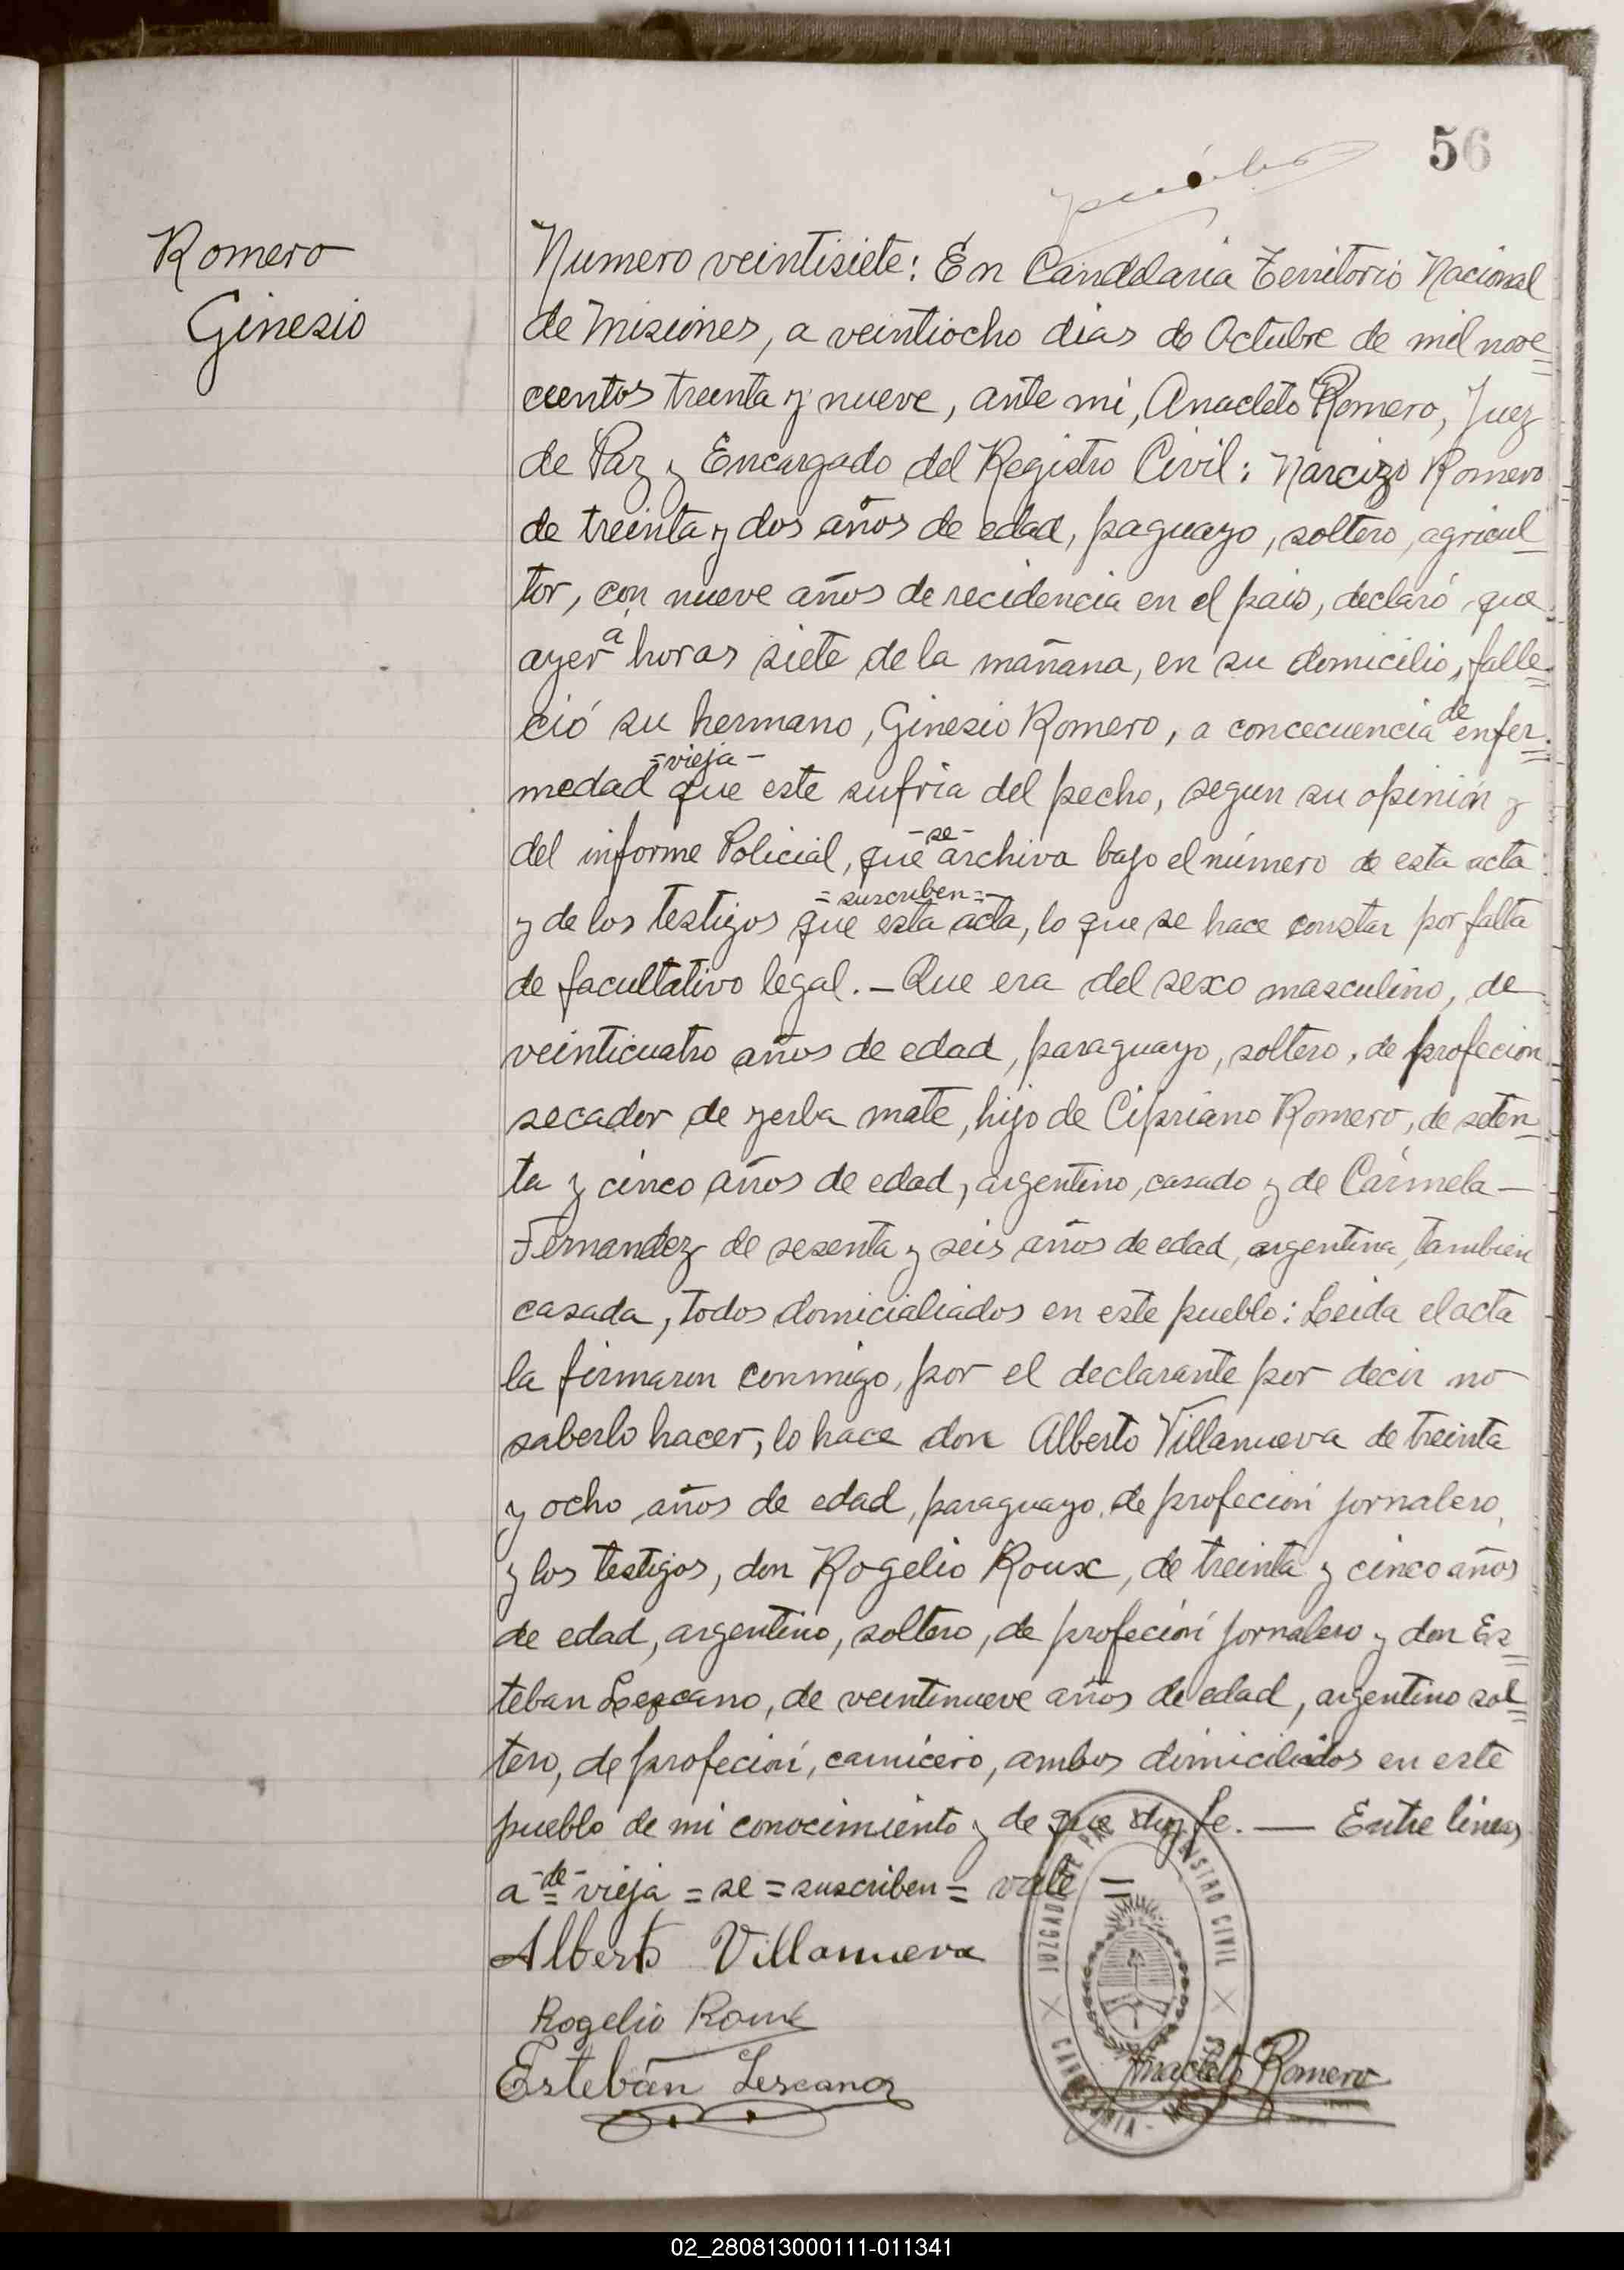 56
Romero
Ginesio
Numero veintisiete: En Candelaria Territorio Nacional
de Misiones, a veintiocho dias de Octubre de mil nove=
cientos treinta y nueve, ante mi, Anacleto Romero, Juez
de Paz y Encargado del Registro Civil: Narcizo Romero
de treinta y dos años de edad, paguayo, soltero, agricul-
tor, con nueve años de recidencia en el pais, declaró, que
ayer a horas siete de la mañana, en su domicilio, falle=
ció su hermano, Ginesio Romero, a concecuencia de enfer=
medad -vieja- que este sufria del pecho, segun su opinión y
del informe Policial, que -se- archiva bajo el número de esta acta
y de los testigos que =suscriben= esta acta, lo que se hace constar por falta
de facultativo legal.- Que era del sexo masculino, de
veinticuatro años de edad, paraguayo, soltero, de profecion
secador de yerba mate, hijo de Cipriano Romero, de seten-
ta y cinco años de edad, argentino, casado y de Cármela -
Fernandez de sesenta y seis años de edad, argentina, tambien
casada, todos domicialiados en este pueblo: Leida el acta
la firmaron conmigo, por el declarante por decir no
saberlo hacer, lo hace don Alberto Villanueva de treinta
y ocho años de edad, paraguayo, de profeción jornalero,
y los testigos, don Rogelio Roux, de treinta y cinco años
de edad, argentino, soltero, de profeción jornalero y don Es=
teban Lezcano, de veintinueve años de edad, argentino sol=
tero, de profeción, carnicero, ambos dimiciliados en este
pueblo de mi conocimiento y de que doy fe. — Entre lineas
a =de= vieja = se = suscriben = vale =
Alberto Villanueva
Rogelio Roux
Esteban Lescano
JUZGADO DE PAZ Y REGISTRO CIVIL
CANDELARIA - MISIONES
Anacleto Romero
02_280813000111-011341